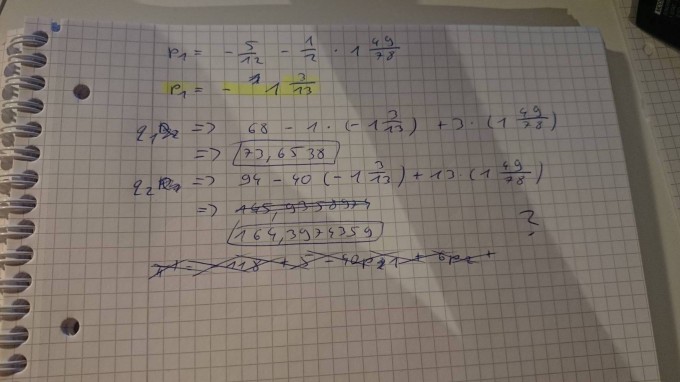 P₁ = - 5/12 - 1/2 · 1 49/78
P₁ = - 1 3/13
q₁ => 68 - 1 · (-1 3/13) + 3 · (1 49/78)
=> 73,6538
q₂ => 94 - 40 (-1 3/13) + 13 · (1 49/78)
=>
164,3974359
?